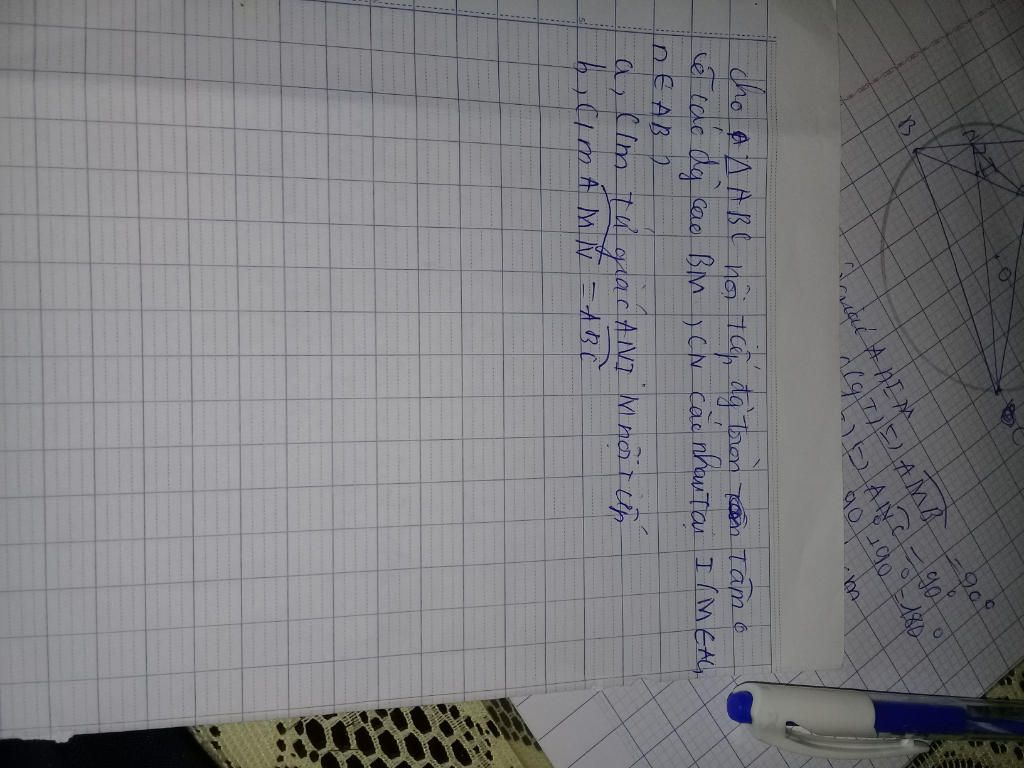 cho A △ ABC nội tiếp đg tròn Tâm O
vẽ các đg cao BM, CN cắt nhau tại I (M ∈ AC,
n ∈ AB)
a, C/m Tứ giác ANIM nội tiếp
b, C/m AMN = ABC
B
N
I
O
C
ANIM
AMB = 90°
ANC = 90°
90° + 90° = 180°